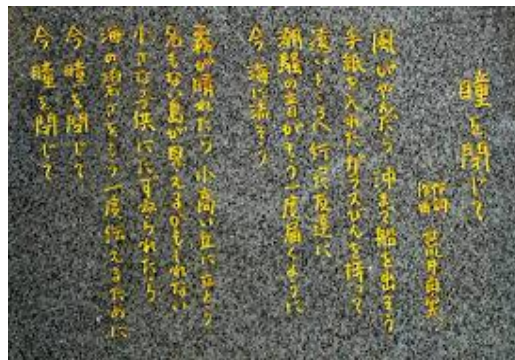 瞳を閉じて
作詞
作曲 荒井由実
風がやんだら 沖まで船を出そう
手紙を入れた ガラスびんを持って
遠いところへ行った友達に
潮騒の音がもう一度届くように
今 海に流そう
霧が晴れたら 小高い丘に立とう
名もない島が見えるかもしれない
小さな子供にたずねられたら
海の碧さをもう一度伝えるために
今 瞳を閉じて
今 瞳を閉じて